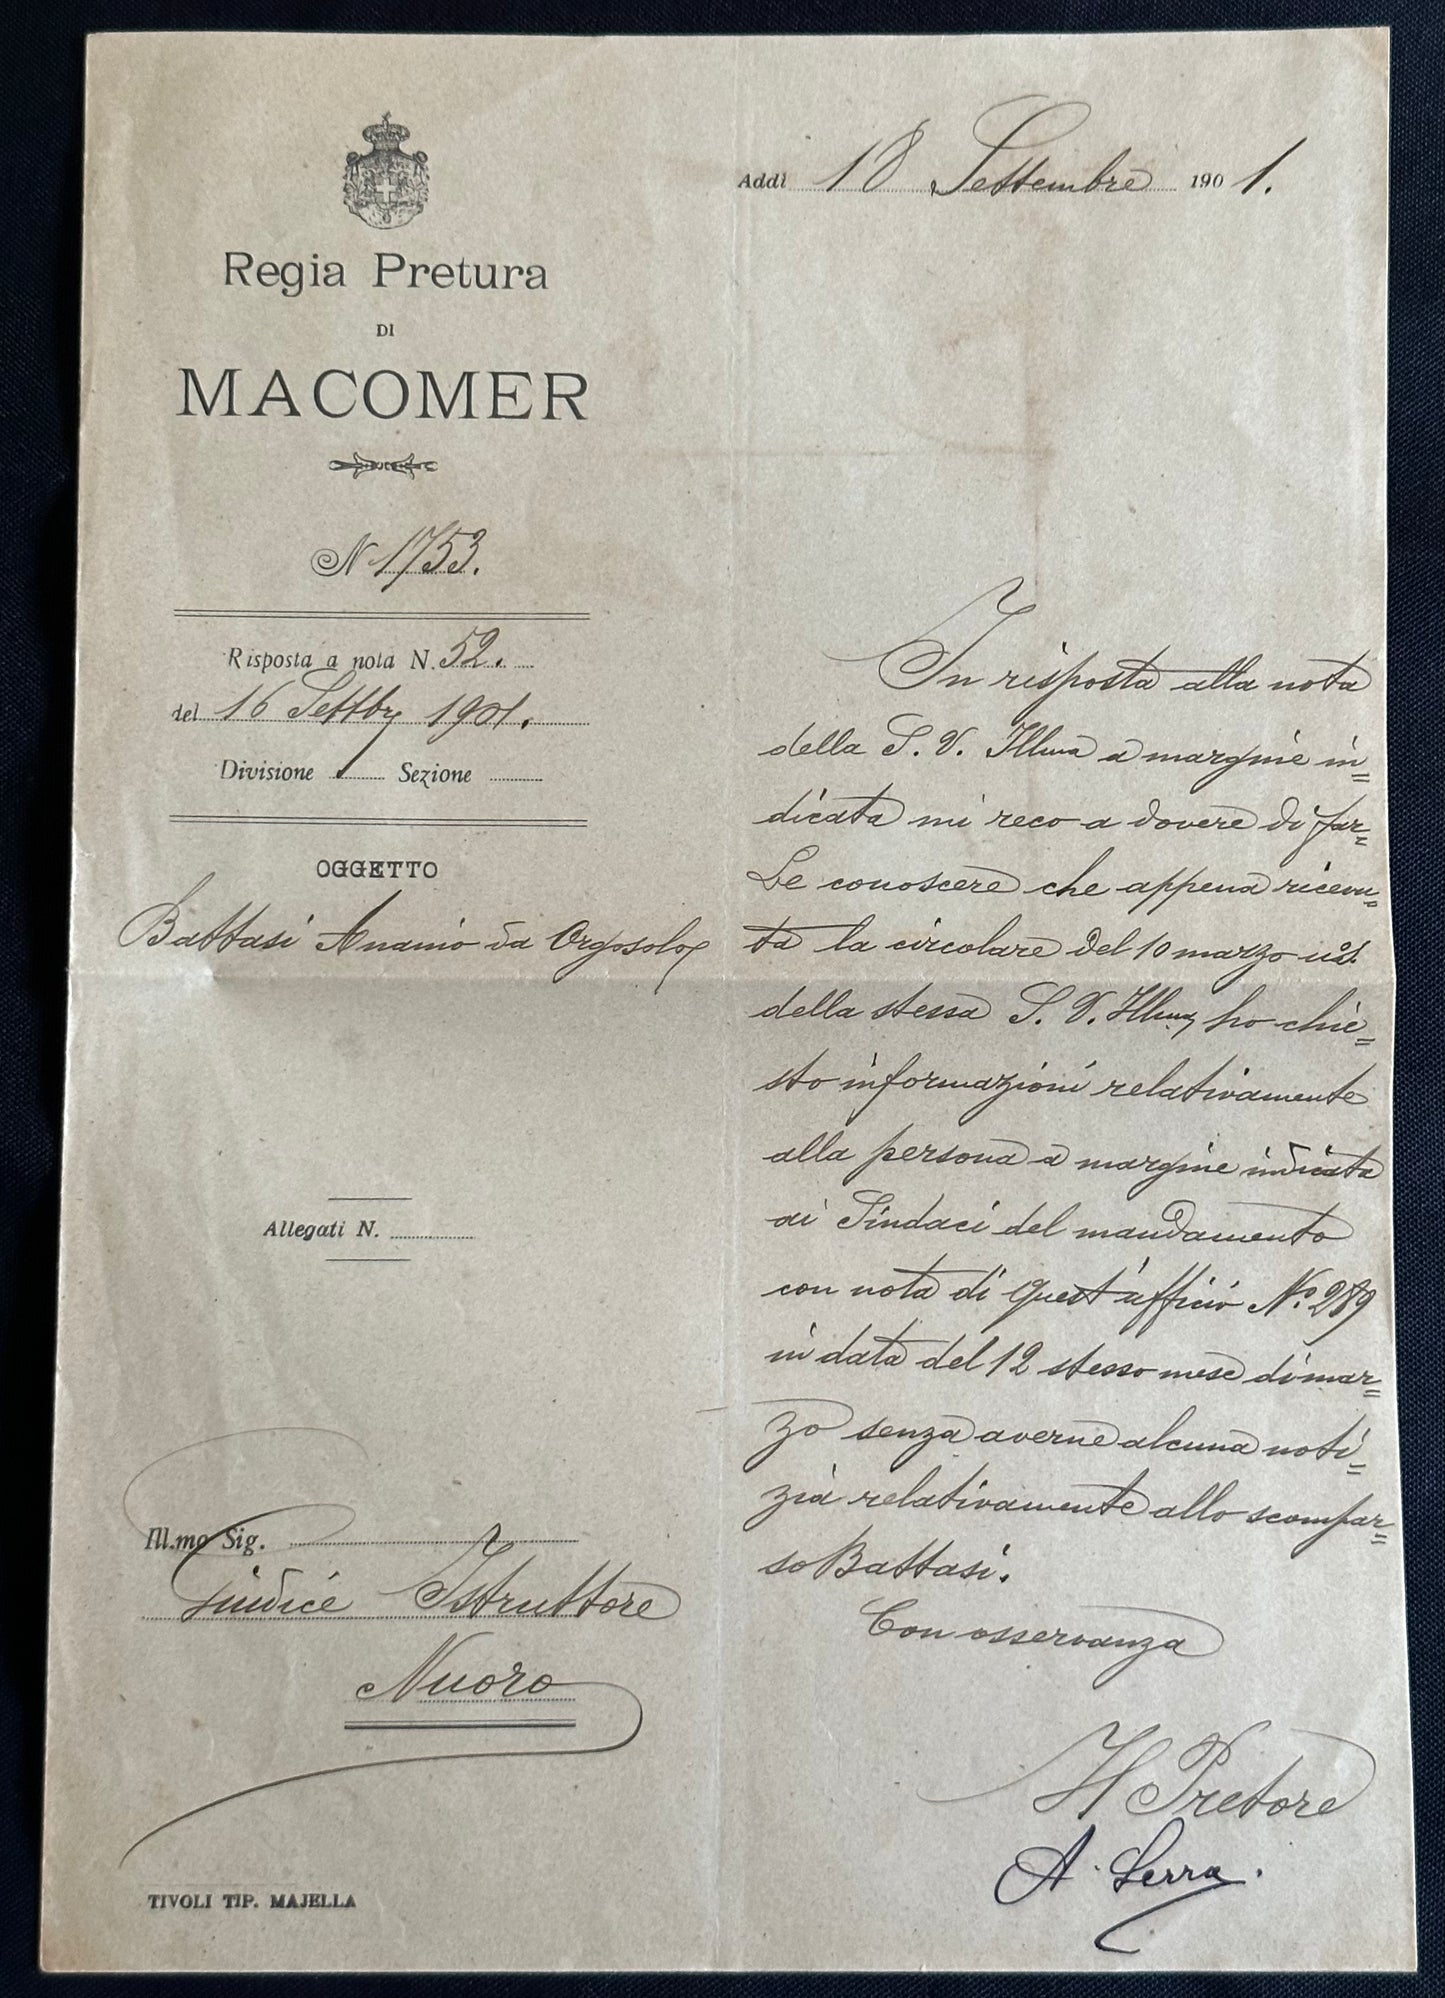 Regia Pretura
DI
MACOMER
N 1753.
Risposta a nota N. 52.
del 16 Settbr 1901.
Divisione 1 Sezione
OGGETTO
Battasi Ananio da Orgosolo
Allegati N.
Ill.mo Sig.
Giudice Istruttore
Nuoro
TIVOLI TIP. MAJELLA
Addì 18 Settembre 1901.
In risposta alla nota
della S. V. Illma a margine in=
dicata mi reco a dovere di far=
Le conoscere che appena ricevu=
ta la circolare del 10 marzo
della stessa S. V. Illma ho chie=
sto informazioni relativamente
alla persona a margine indicata
ai Sindaci del mandamento
con nota di quest'ufficio No. 289
in data del 12 stesso mese di mar=
zo senza averne alcuna noti=
zia relativamente allo scompar=
so Battasi.
Con osservanza
Il Pretore
A. Serra.